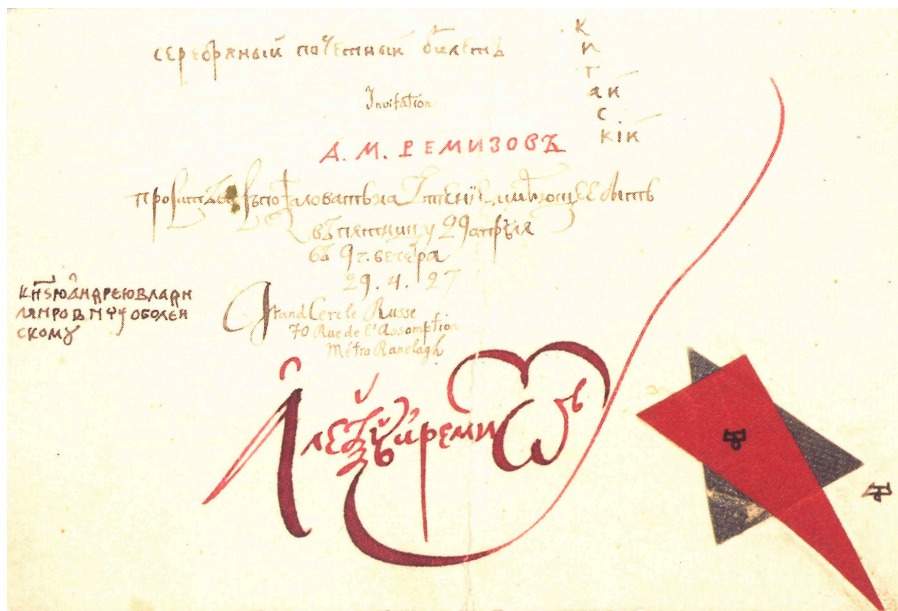 серебряный почетный билетъ
китайскій
Invitation
А. М. РЕМИЗОВЪ
проситъ Въ пожаловать на Чтеніе имѣющее быть
въ пятницу 29 апрѣля
въ 9 ч. вечера
29. 4. 27
Grand Cercle Russe
70 Rue de l'Assomption
Métro Ranelagh
КНЗЮ АНДРЕЮ ВЛАДИ
МИРОВИЧУ ОБОЛЕН
СКОМУ
Алеѯѣй Ремиꙁовъ